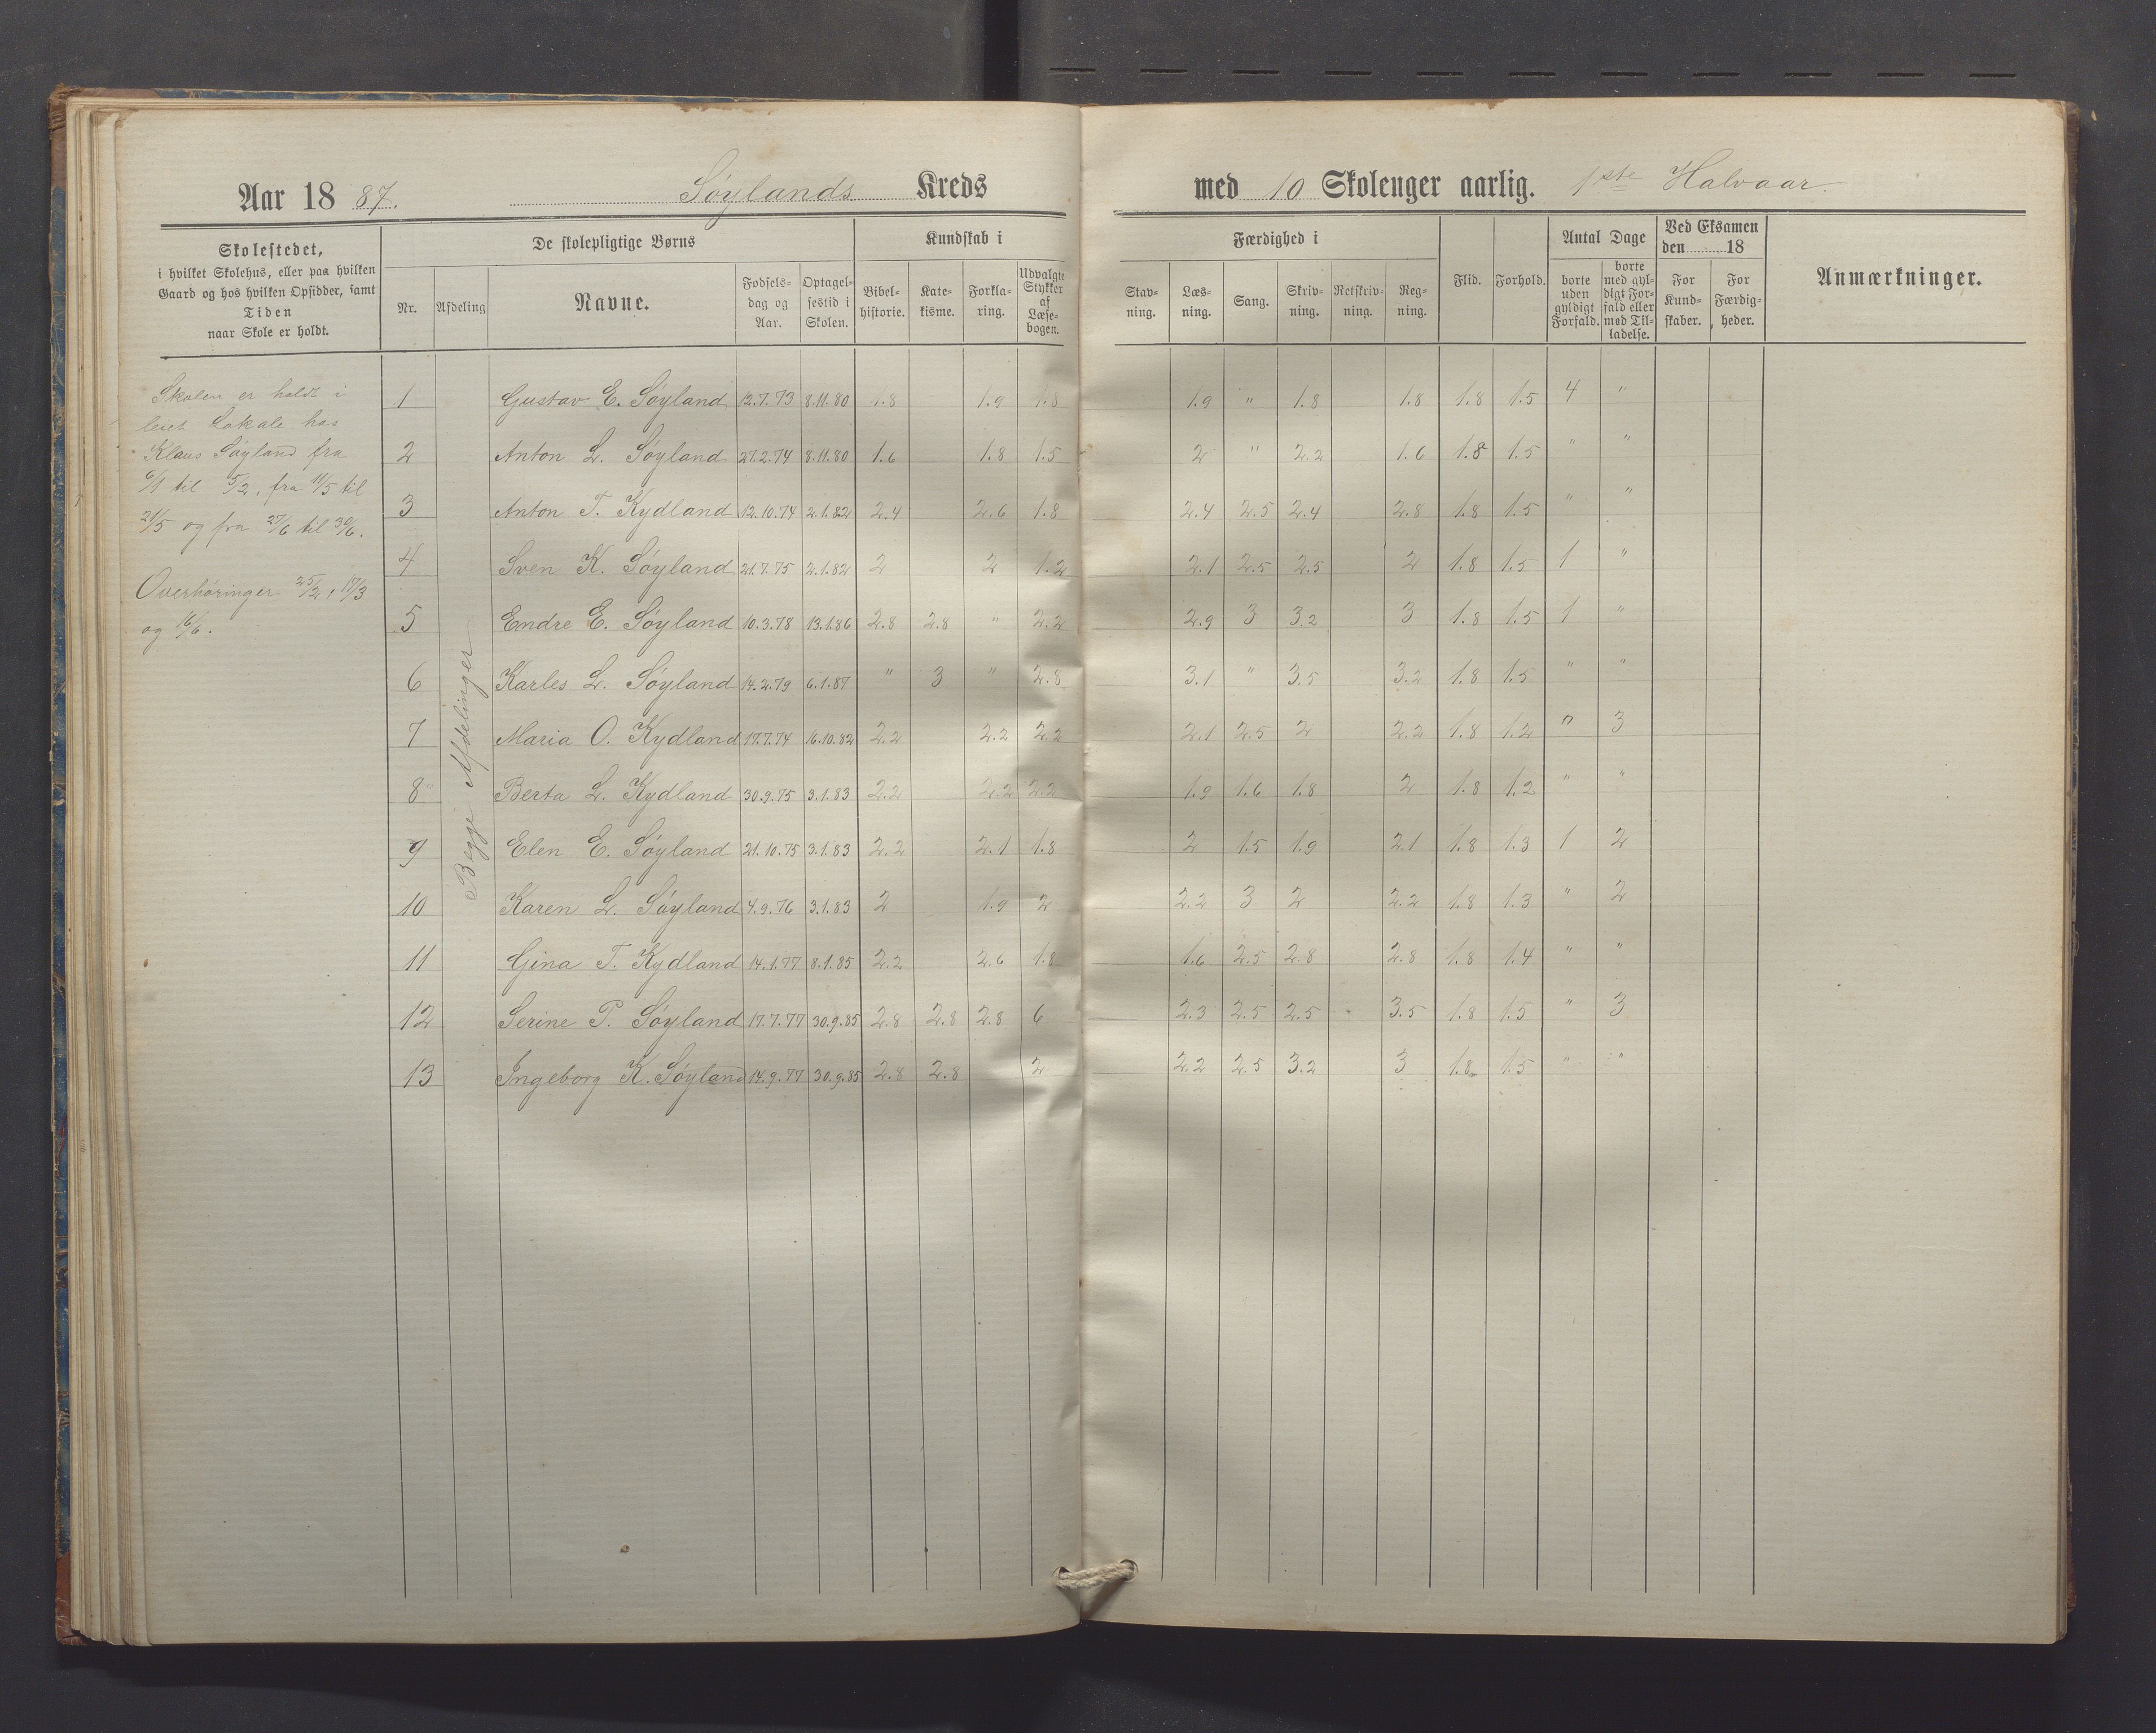 Aar 18 87. Søylands Kreds med 10 Skoleuger aarlig. 1ste Halvaar.
Skolestedet,
i hvilket Skolehus, eller paa hvilken
Gaard og hos hvilken Opsidder, samt
Tiden
naar Skole er holdt.
De skolepligtige Børns
Nr. Afdeling Navne. Fødsels- dag og Aar. Optagel- sestid i Skolen.
Kundskab i
Bibel- historie. Kate- kisme. Forkla- ring. Udvalgte Stykker af Læse- bogen.
Færdighed i
Stav- ning. Læs- ning. Sang. Skriv- ning. Retskriv- ning. Reg- ning.
Flid. Forhold.
Antal Dage
borte uden gyldigt Forfald. borte med gyl- digt For- fald eller med Til- ladelse.
Ved Eksamen
den 18
For Kund- skaber. For Færdig- heder.
Anmærkninger.
Skolen er holdt i
leiet Lokale hos
Klaus Søyland fra
6/1 til 5/2, fra 11/5 til
21/5 og fra 27/6 til 30/6.
Overhøringer 25/2, 17/3
og 16/6.
Begge Afdelinger
1 Gustav E. Søyland 12.7.73 8.11.80 1.8 1.9 1.8 1.9 " 1.8 1.8 1.8 1.5 4 "
2 Anton L. Søyland 27.2.74 8.11.80 1.6 1.8 1.5 2 " 2.2 1.6 1.8 1.5 " "
3 Anton T. Kydland 12.10.74 2.1.82 2.4 2.6 1.8 2.4 2.5 2.4 2.8 1.8 1.5 " "
4 Sven K. Søyland 21.7.75 2.1.82 2 2 1.2 2.1 2.5 2.5 2 1.8 1.5 1 "
5 Endre E. Søyland 10.3.78 13.1.86 2.8 2.8 " 2.2 2.9 3 3.2 3 1.8 1.5 1 "
6 Karles L. Søyland 14.2.79 6.1.87 " 3 " 2.8 3.1 " 3.5 3.2 1.8 1.5 " "
7 Maria O. Kydland 17.7.74 16.10.82 2.2 2.2 2.2 2.1 2.5 2 2.2 1.8 1.2 " 3
8 Berta L. Kydland 30.9.75 3.1.83 2.2 2.2 2.2 1.9 1.6 1.8 2 1.8 1.2 " "
9 Elen E. Søyland 21.10.75 3.1.83 2.2 2.1 1.8 2 1.5 1.9 2.1 1.8 1.3 1 2
10 Karen L. Søyland 4.9.76 3.1.83 2 1.9 2 2.2 3 2 2.2 1.8 1.3 " 2
11 Gina T. Kydland 14.1.77 8.1.85 2.2 2.6 1.8 1.6 2.5 2.8 2.8 1.8 1.4 " "
12 Serine P. Søyland 17.7.77 30.9.85 2.8 2.8 2.8 6 2.3 2.5 2.5 3.5 1.8 1.5 " 3
13 Ingeborg K. Søyland 14.9.77 30.9.85 2.8 2.8 2 2.2 2.5 3.2 3 1.8 1.5 " "